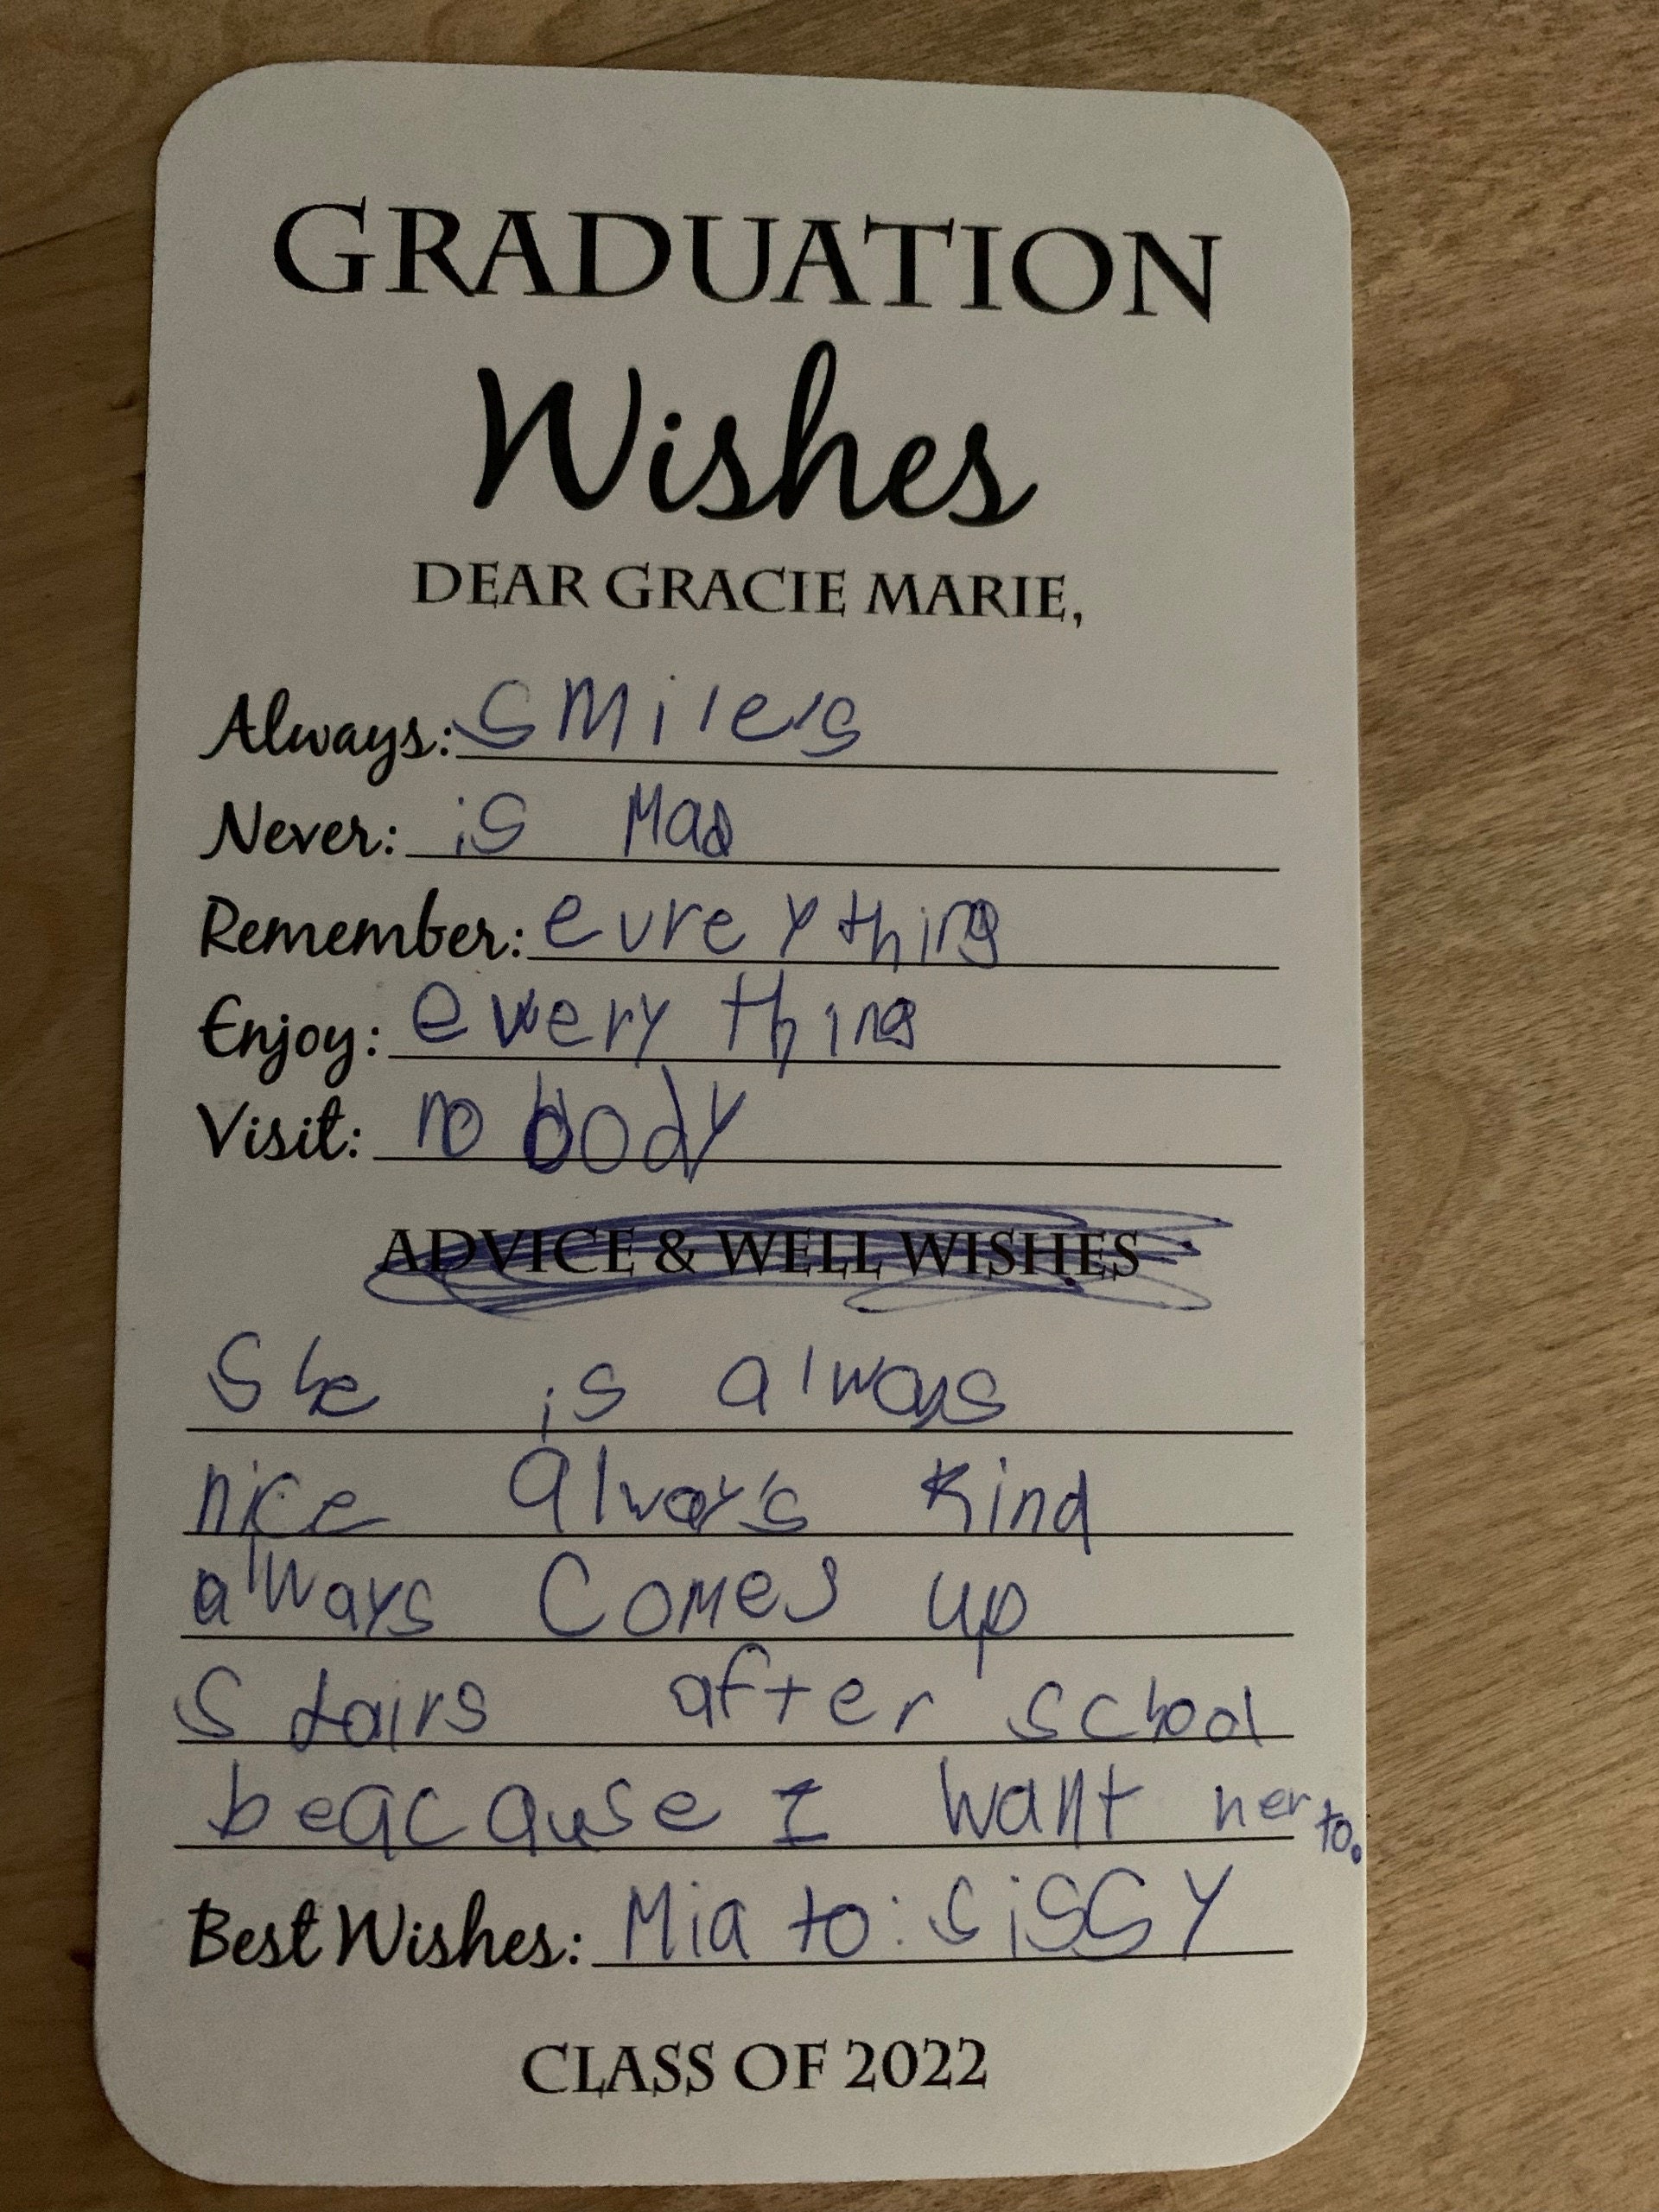 GRADUATION
Wishes
DEAR GRACIE MARIE,
Always: smiles
Never: is Mad
Remember: eureything
Enjoy: every thing
Visit: no body
ADVICE & WELL WISHES
She is always
nice always kind
always Comes up
stairs after school
beacause I want her to.
Best Wishes: Mia to: SiSSY
CLASS OF 2022